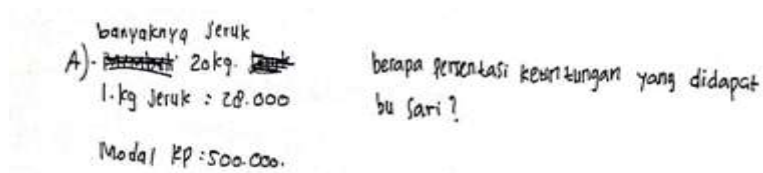 banyaknya Jeruk
A). 20kg.
1.kg Jeruk : 28.000
Modal RP : 500.000.
berapa persentasi keuntungan yang didapat
bu sari?